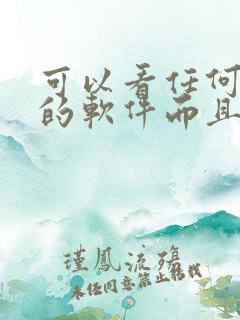 可以看任何
的軟件而且
瑾鳳流殤
未任同意禁止转找